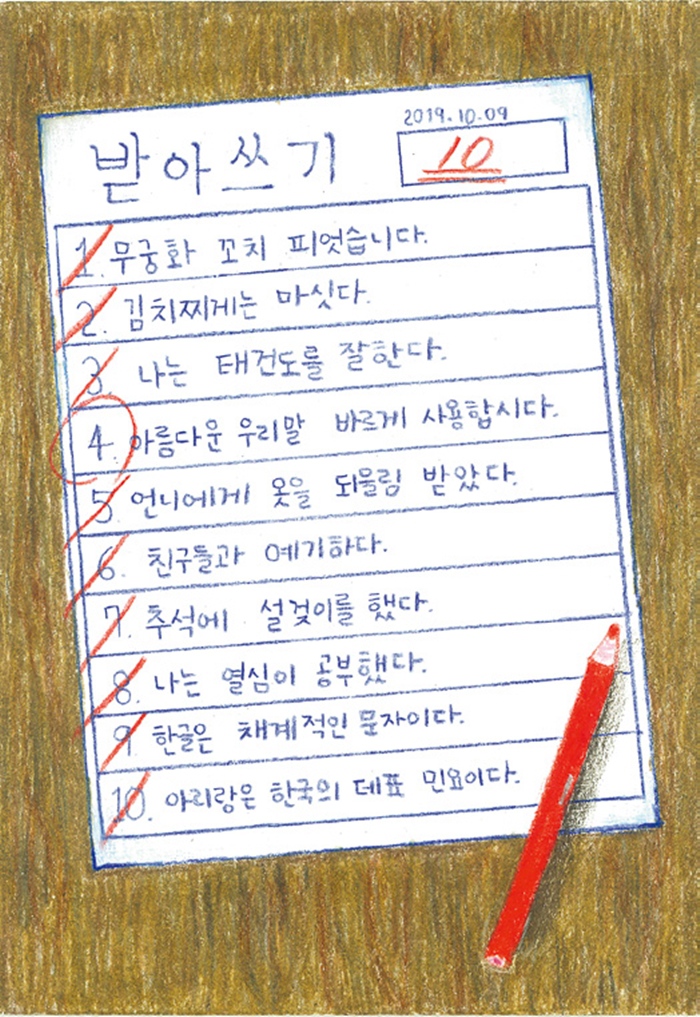 2019.10.09
받아쓰기
10
1. 무궁화 꼬치 피엇습니다.
2. 김치찌게는 마싯다.
3. 나는 태건도를 잘한다.
4. 아름다운 우리말 바르게 사용합시다.
5. 언니에게 옷을 되울림 받았다.
6. 친구들과 예기하다.
7. 추석에 설겆이를 했다.
8. 나는 열심이 공부했다.
9. 한글은 채계적인 문자이다.
10. 아리랑은 한국의 데표 민요이다.